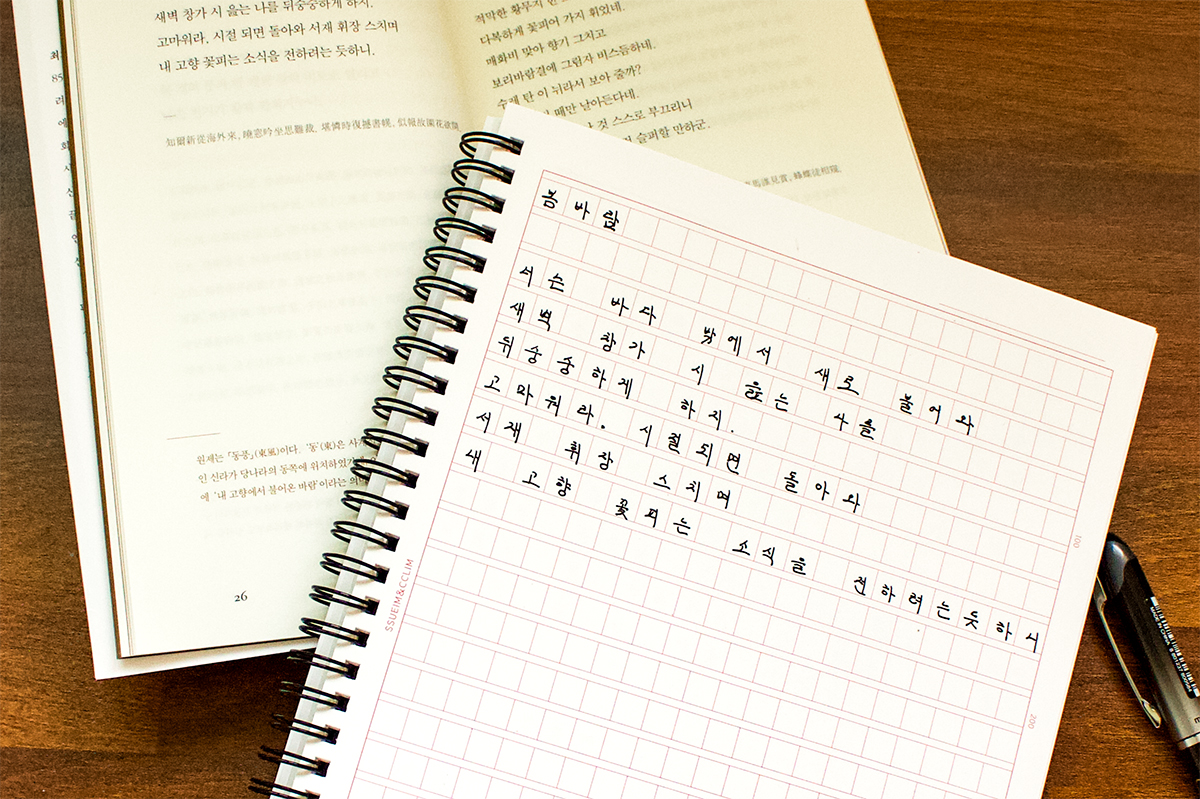 새벽 창가 시 읊는 나를 뒤숭숭하게 하지.
고마워라, 시절 되면 돌아와 서재 휘장 스치며
내 고향 꽃피는 소식을 전하려는 듯하니.
知爾新從海外來, 曉窓吟坐思難裁. 堪憐時復撼書幌, 似報故園花欲
원제는 「동풍」(東風)이다. '동'(東)은
인 신라가 당나라의 동쪽에 위치하였기
에 '내 고향에서 불어온 바람'이라는
26
적막한 황무지 한
다복하게 꽃피어 가지 휘었네.
매화비 맞아 향기 그치고
보리바람결에 그림자 비스듬하네.
수레 탄 이 뉘라서 보아 줄까?
때만 날아든다네.
것 스스로 부끄리니
슬퍼할 만하군.
馬誰見賞, 蜂蝶徒相窺.
봄바람
너는 바다 밖에서 새로 불어와
새벽 창가 시 읊는 나를
뒤숭숭하게 하지.
고마워라. 시절되면 돌아와
서재 휘장 스치며
내 고향 꽃피는 소식을 전하려는듯하니
100
200
SSUEIM&CCLIM